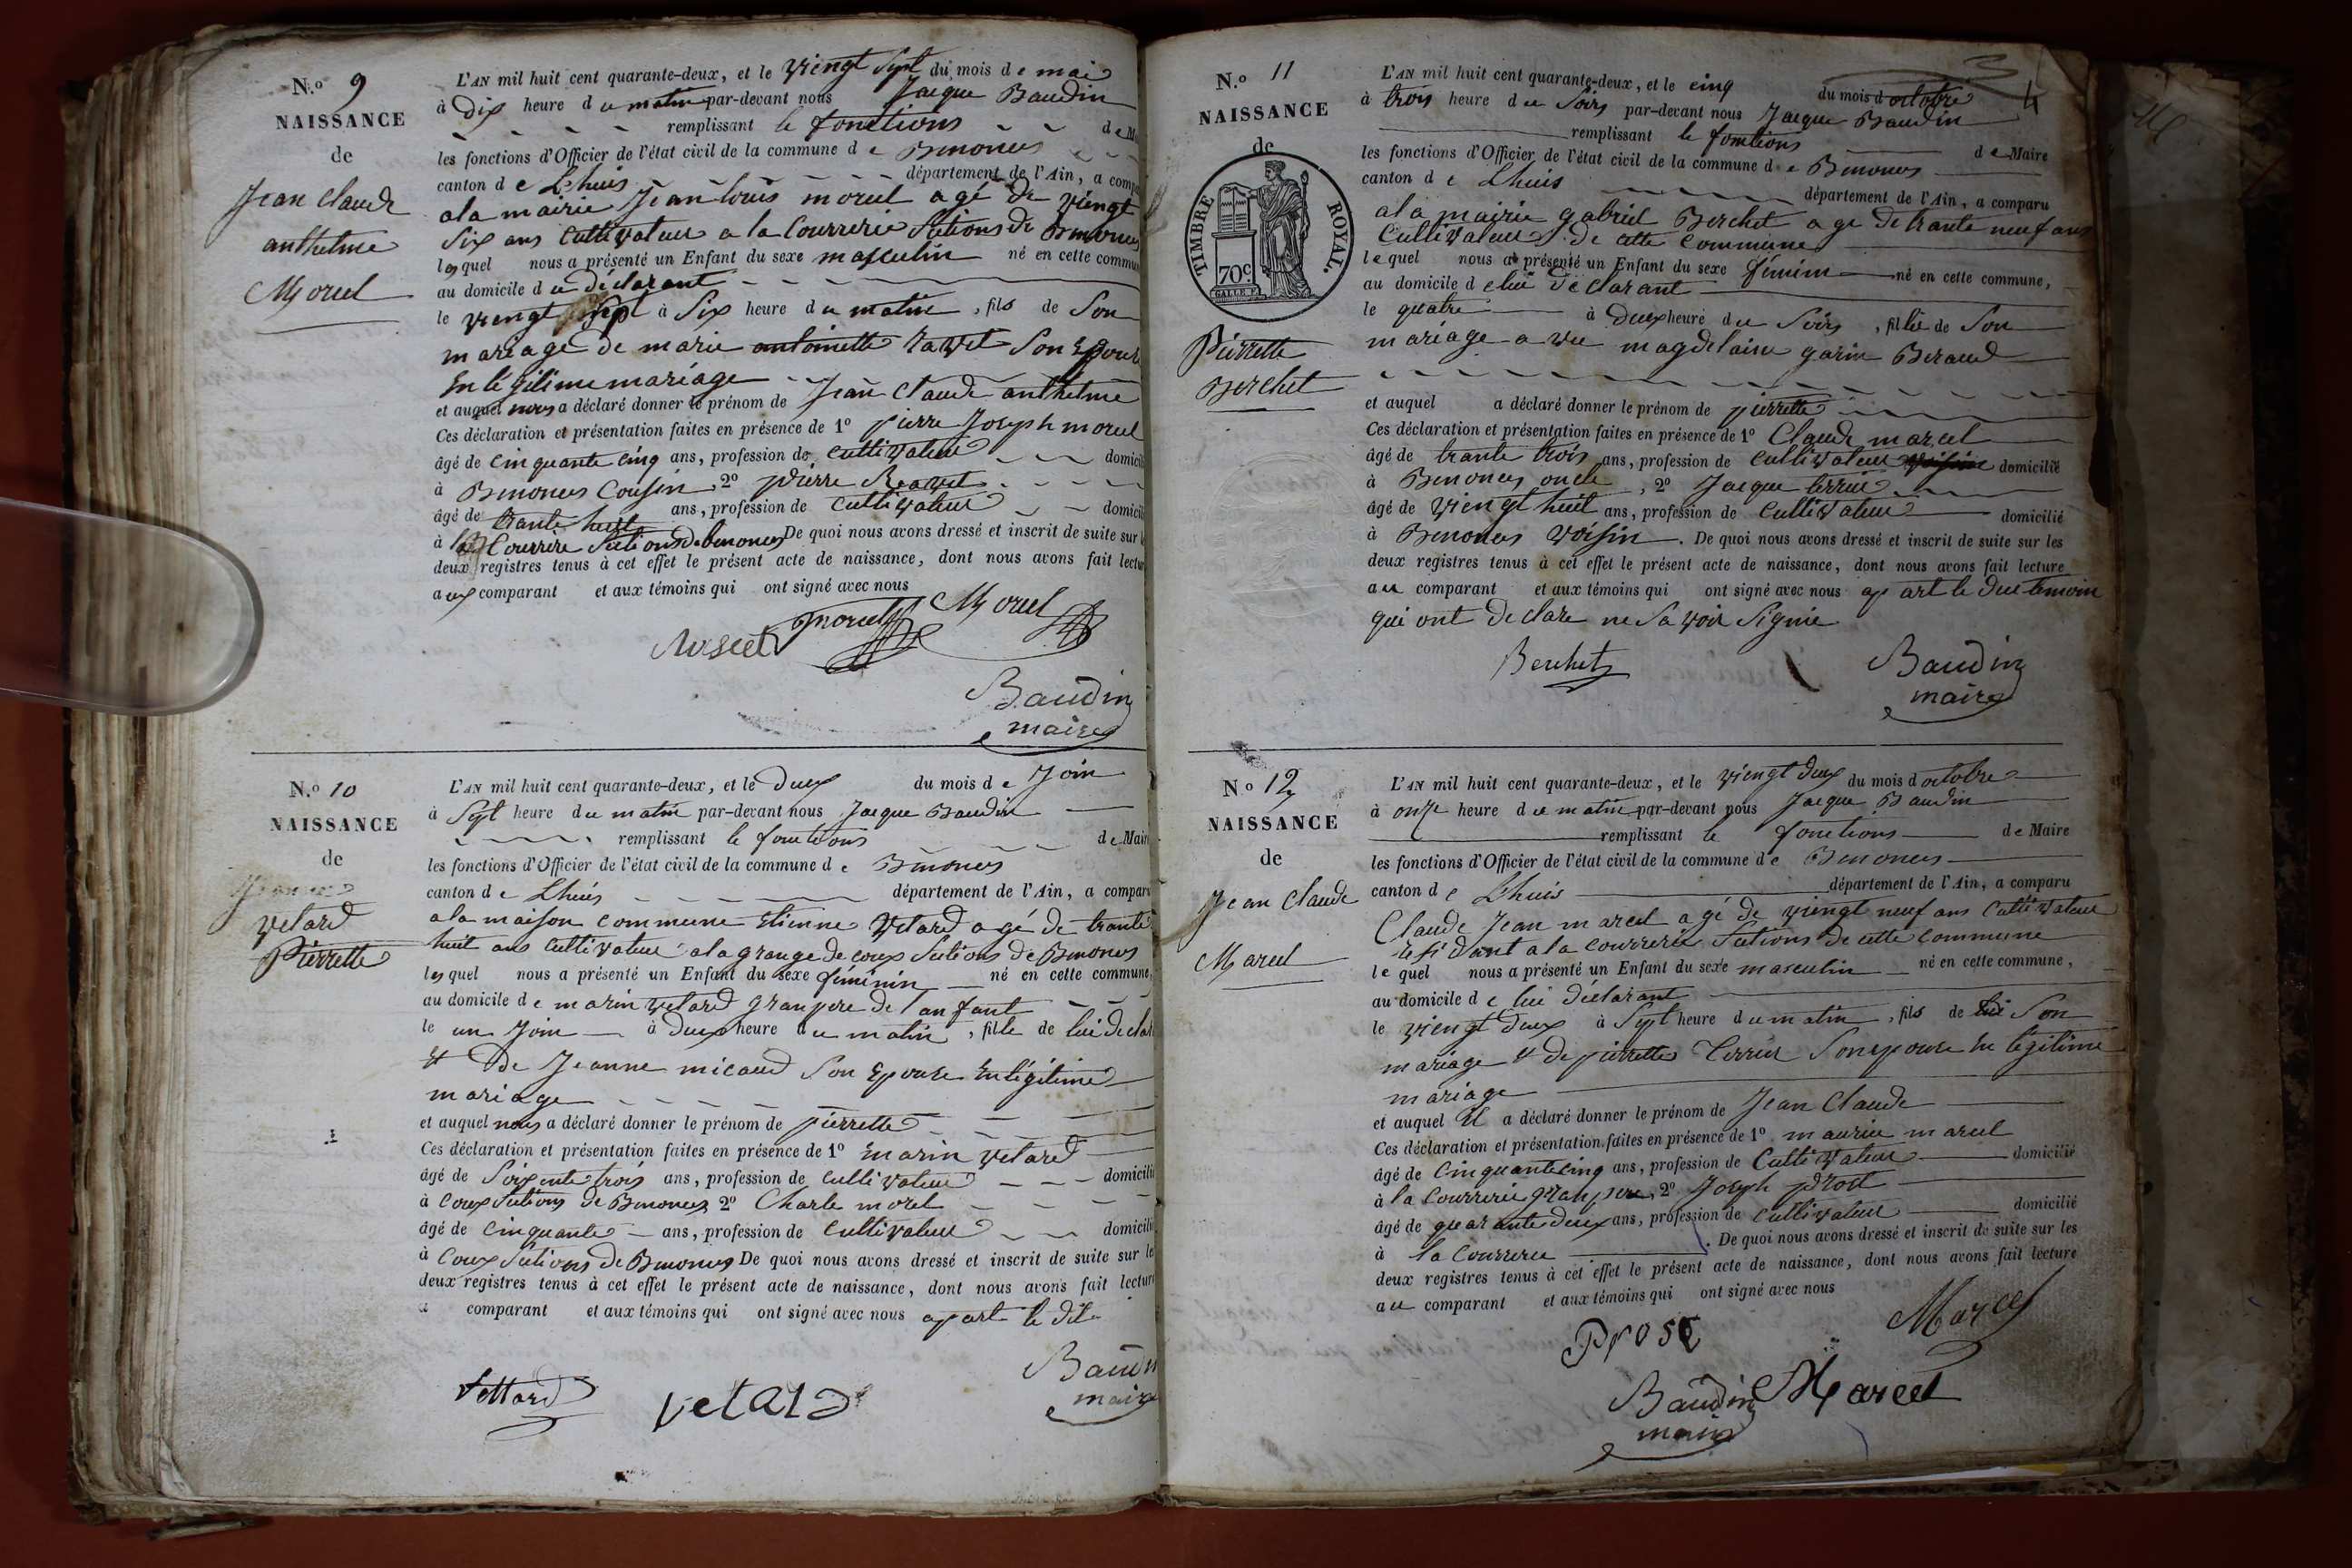 N.o 9
NAISSANCE
de
Jean Claude
anthelme
Morel
L'AN mil huit cent quarante-deux, et le vieng Sept du mois de mai
à Dix heure du matin par-devant nous Jacque Baudin
remplissant le fonctions de M
les fonctions d'Officier de l'état civil de la commune de Benonces
canton de Lhuis département de l'Ain, a comp
a la mairie Jean louis morel agé de viengt
Six ans Cultivateur a la Courrerie Sections de Benonces
lesquel nous a présenté un Enfant du sexe masculin né en cette commun
au domicile du déclarant
le viengt Sept à Six heure du matin, fils de Son
mariage de marie antoinette ravet Son Epous
En légitime mariage
et auquel nous a déclaré donner le prénom de Jean Claude anthelme
Ces déclaration et présentation faites en présence de 1o pierre Joseph morel
âgé de Cinquante cinq ans, profession de Cultivateur domicili
à Benonces Cousin, 2o pierre Ravet
âgé de trante huit ans, profession de Cultivateur domicili
à la Courrire Sections de benonces De quoi nous avons dressé et inscrit de suite sur l
deux registres tenus à cet effet le présent acte de naissance, dont nous avons fait lectur
aux comparant et aux témoins qui ont signé avec nous
morel Morel
Baudin
maire
N.o 10
NAISSANCE
de
vetard
Pierrette
L'AN mil huit cent quarante-deux, et le Deux du mois de Join
à Sept heure du matin par-devant nous Jacque Baudin
remplissant le fonctions de Mair
les fonctions d'Officier de l'état civil de la commune de Benonces
canton de Lhuis département de l'Ain, a comparu
a la maison commune Etienne Vetard agé de trante
huit ans Cultivateur a la grange de coux Sections de Benonces
lesquel nous a présenté un Enfant du sexe féminin né en cette commune,
au domicile de marin vetard granpere de l'anfant
le un Join à Deux heure du matin, fille de lui declar
et De Jeanne micaud Son Epouse En légitime
mariage
et auquel nous a déclaré donner le prénom de pierrette
Ces déclaration et présentation faites en présence de 1o marin vetard
âgé de Soixente trois ans, profession de Cultivateur domicilié
à Coux Sections de Benonces 2o Charle morel
âgé de Cinquante ans, profession de Cultivateur domicilié
à Coux Sections de Benonces De quoi nous avons dressé et inscrit de suite sur le
deux registres tenus à cet effet le présent acte de naissance, dont nous avons fait lecture
a comparant et aux témoins qui ont signé avec nous apart le dit
Vettard Vetard
Baudin
maire
N.o 11
NAISSANCE
de
TIMBRE ROYAL.
70c
Pierrette
Berchet
4
L'AN mil huit cent quarante-deux, et le cinq du mois d'octobre
à trois heure du Soirs par-devant nous Jacque Baudin
remplissant le fonctions de Maire
les fonctions d'Officier de l'état civil de la commune de Benonces
canton de Lhuis département de l'Ain, a comparu
a la mairie gabriel Berchet agé de trante neuf ans
Cultivateur de cette Commune
lequel nous a présenté un Enfant du sexe féminin né en cette commune,
au domicile de lui déclarant
le quatre à Deux heure du Soirs, fille de Son
mariage avec magdelaine garin Beraud
et auquel a déclaré donner le prénom de pierrette
Ces déclaration et présentation faites en présence de 1o Claude marcel
âgé de trante trois ans, profession de Cultivateur voisin domicilié
à Benonces oncle, 2o Jacque terrier
âgé de viengt huit ans, profession de Cultivateur domicilié
à Benonces Voisin. De quoi nous avons dressé et inscrit de suite sur les
deux registres tenus à cet effet le présent acte de naissance, dont nous avons fait lecture
au comparant et aux témoins qui ont signé avec nous apart le Deux temoin
qui ont Declare ne Savoir Signié
Berchet
Baudin
maire
No 12
NAISSANCE
de
Jean Claude
Marcel
L'AN mil huit cent quarante-deux, et le viengt deux du mois d'octobre
à onze heure du matin par-devant nous Jacque Baudin
remplissant le fonctions de Maire
les fonctions d'Officier de l'état civil de la commune de Benonces
canton de Lhuis département de l'Ain, a comparu
Claude Jean marcel agé de viengt neuf ans Cultivateur
residant a la Courrerie Sections de cette Commune
lequel nous a présenté un Enfant du sexe masculin né en cette commune,
au domicile de lui déclarant
le viengt deux à Sept heure du matin, fils de lui Son
mariage et de pierrette terrier Son epouse En légitime
mariage
et auquel il a déclaré donner le prénom de Jean Claude
Ces déclaration et présentation faites en présence de 1o maurice marcel
âgé de Cinquante cinq ans, profession de Cultivateur domicilié
à la Courrerie granpere, 2o Joseph prost
âgé de quarante deux ans, profession de Cultivateur domicilié
à la Courrerie. De quoi nous avons dressé et inscrit de suite sur les
deux registres tenus à cet effet le présent acte de naissance, dont nous avons fait lecture
au comparant et aux témoins qui ont signé avec nous
Prost Marcel
Baudin Marcel
maire